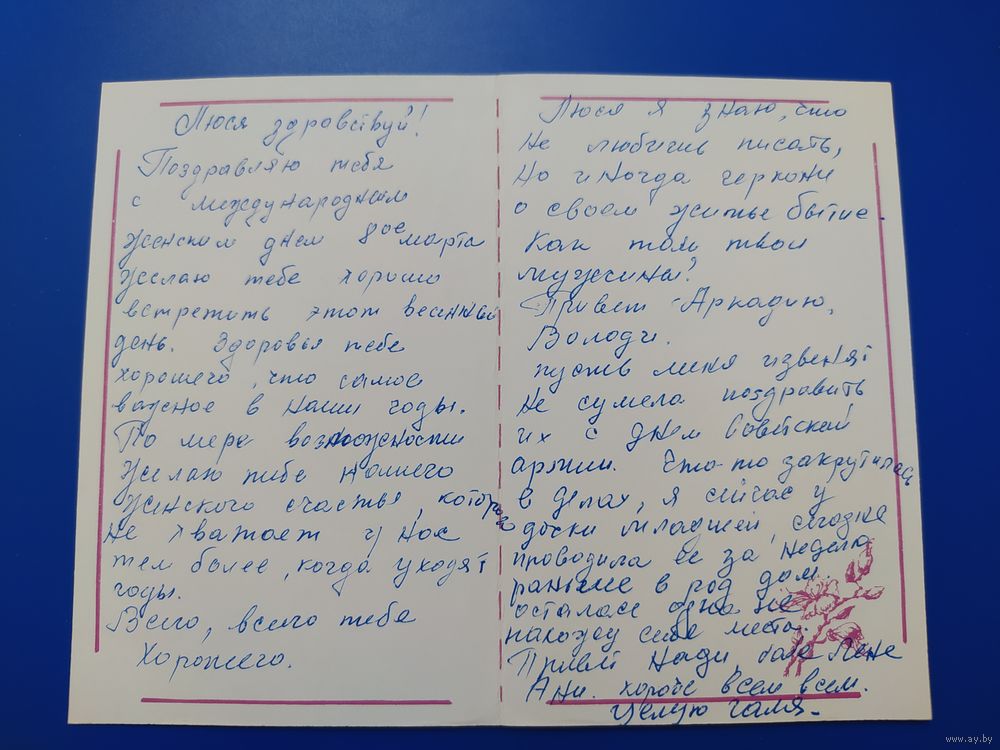 Люся здравствуй!
Поздравляю тебя
с международным
женским днем 8ое марта
Желаю тебе хорошо
встретить этот весенний
день. Здоровья тебе
хорошего, что самое
важное в наши годы.
По мере возможности
Желаю тебе нашего
женского счастья, которого
не хватает у нас
тем более, когда уходят
годы.
Всего, всего тебе
хорошего.
Люся я знаю, что
не любишь писать,
но иногда черкони
о своем житье бытие.
Как там твои
мужчины?
Привет Аркадию,
Володи.
пусть меня извенят
не сумела поздравить
их с днем Советской
армии. Что-то закрутилась
в делах, я сейчас у
младшей
проводила ее за неделю
раньше в род дом.
осталась одна не
нахожу себе места.
Привет Нади, Лене
Ани. короче всем всем.
Целую Галя.
www.ay.by